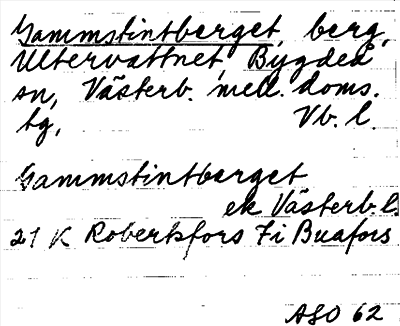 Gammstintberget, berg,
Ultervattnet, Bygdeå
sn, Västerb. mell. doms.
tg, Vb. l.
Gammstintberget
ek Västerb. l.
21 K Robertsfors 7i Buafors
ASO 62